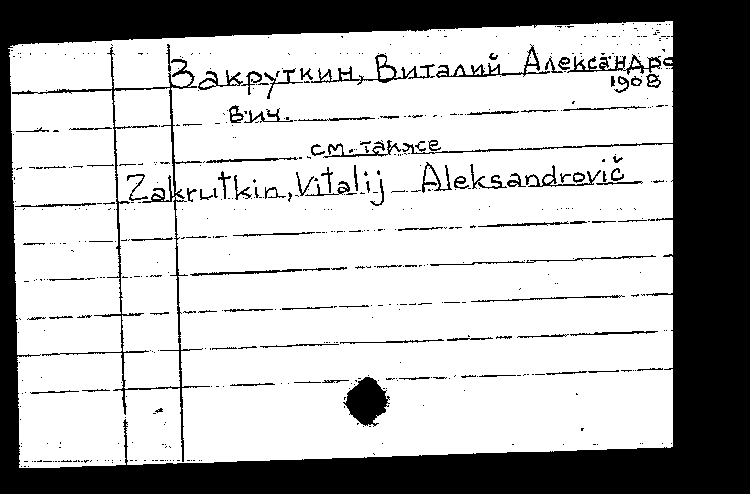 Закруткин, Виталий Александро
1908
вич.
см. также
Zakrutkin, Vitalij Aleksandrovič